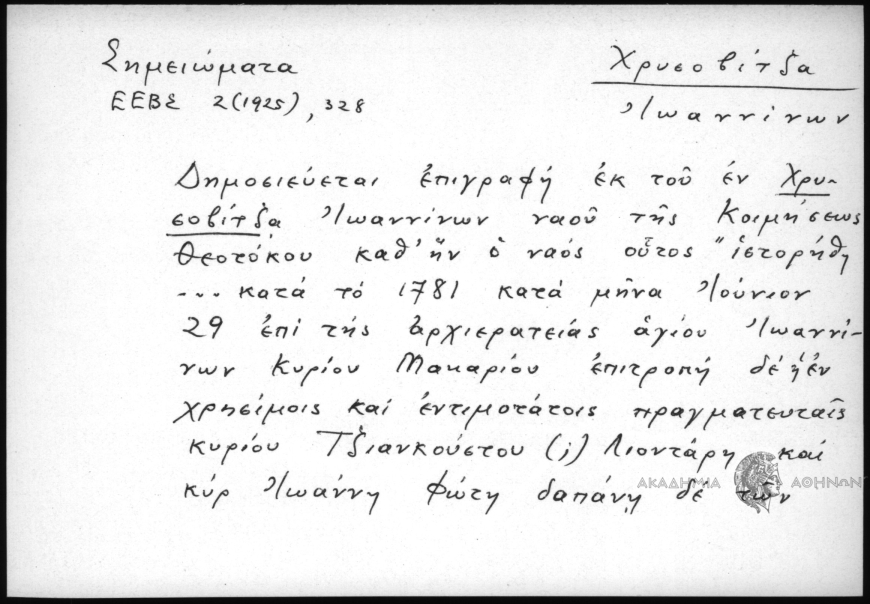 Σημειώματα
ΕΕΒΣ 2(1925), 328
Χρυσοβίτζα
Ἰωαννίνων
Δημοσιεύεται ἐπιγραφή ἐκ τοῦ ἐν Χρυ-
σοβίτζα Ἰωαννίνων ναοῦ τῆς Κοιμήσεως
Θεοτόκου καθ' ἥν ὁ ναός οὗτος "ἱστορήθη
... κατά τό 1781 κατά μῆνα Ἰούνιον
29 ἐπί τῆς ἀρχιερατείας ἁγίου Ἰωαννί-
νων Κυρίου Μακαρίου ἐπιτροπή δέ ἡ ἐν
χρησίμοις καί ἐντιμοτάτοις πραγματευταῖς
κυρίου Τζιανκούστου (;) Λιοντάρη καί
κύρ Ἰωάννη Φώτη δαπάνῃ δέ τῶν
ΑΚΑΔΗΜΙΑ ΑΘΗΝΩΝ